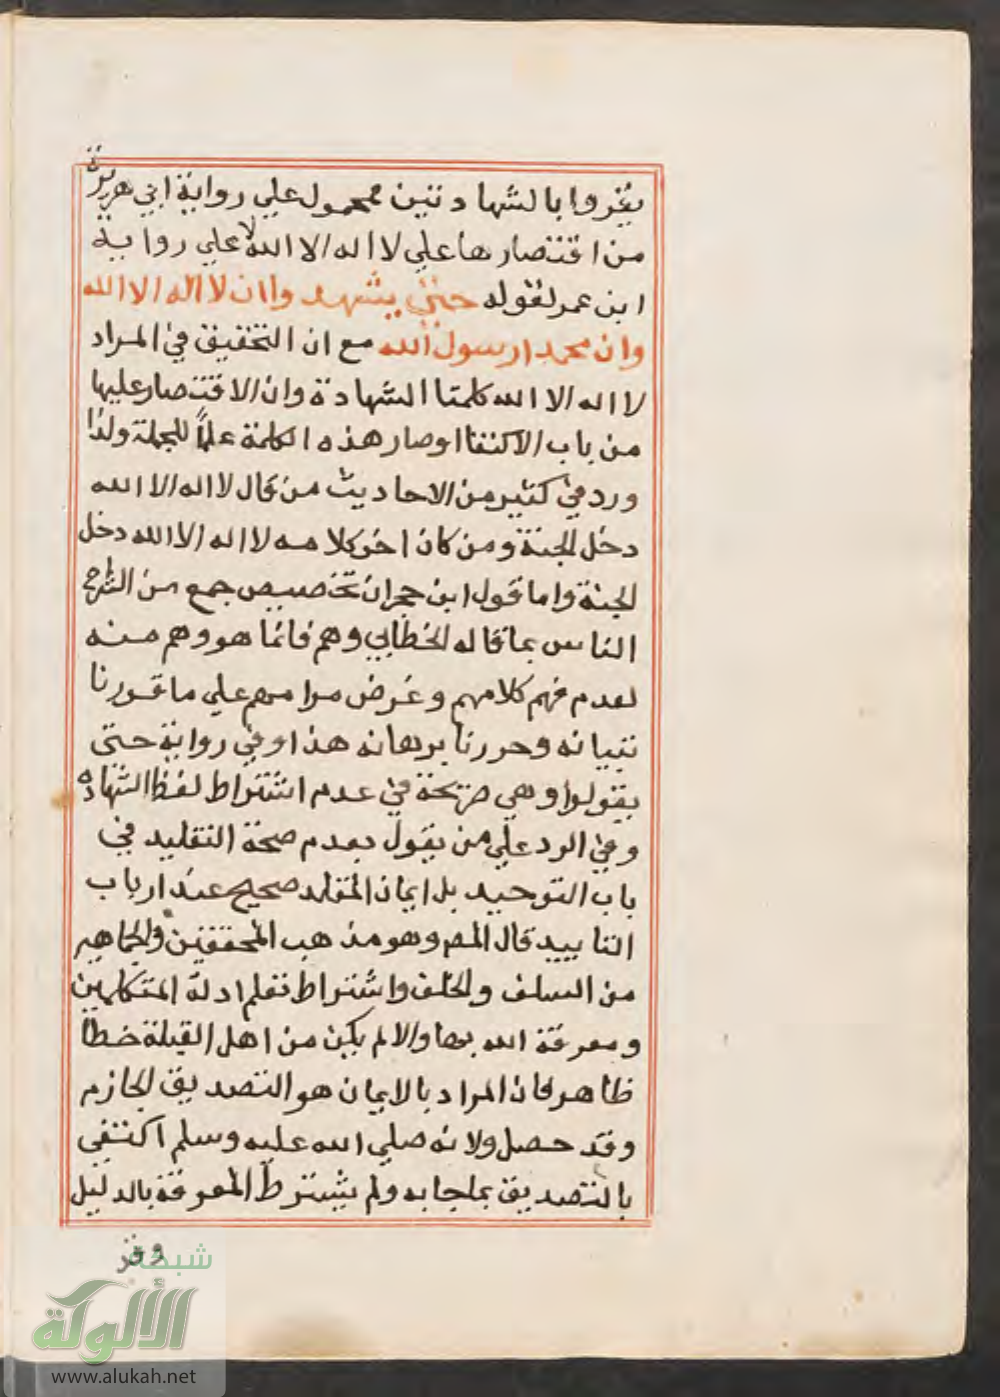 يقروا بالشهادتين محمول علي رواية ابي هريرة
من اقتصارها علي لا اله الا الله لا علي رواية
ابن عمر لقوله حتي يشهدوا ان لا اله الا الله
وان محمدا رسول الله مع ان التحقيق في المراد
لا اله الا الله كلمتا الشهادة وان الاقتصار عليها
من باب الاكتفا او صار هذه الكلمة علما للجملة ولذا
ورد في كثير من الاحاديث من قال لا اله الا الله
دخل الجنة ومن كان اخر كلامه لا اله الا الله دخل
الجنة واما قول ابن حجر ان تخصيص جمع من الشراح
الناس بما قاله الخطابي وهم فانما هو وهم منه
لعدم فهم كلامهم وغرض مرامهم علي ما قررنا
تبيانه وحررنا برهانه هذا وفي رواية حتي
يقولوا وهي صريحة في عدم اشتراط لفظ الشهادة
وفي الرد علي من يقول بعدم صحة التقليد في
باب التوحيد بل ايمان المقلد صحيح عند ارباب
التاييد قال المص وهو مذهب المحققين والجماهير
من السلف والخلف واشتراط تعلم ادلة المتكلمين
ومعرفة الله بها والا لم يكن من اهل القبلة خطأ
ظاهر فان المراد بالايمان هو التصديق الجازم
وقد حصل ولانه صلي الله عليه وسلم اكتفي
بالتصديق بما جا به ولم يشترط المعرفة بالدليل
شبكة
الألوكة
www.alukah.net